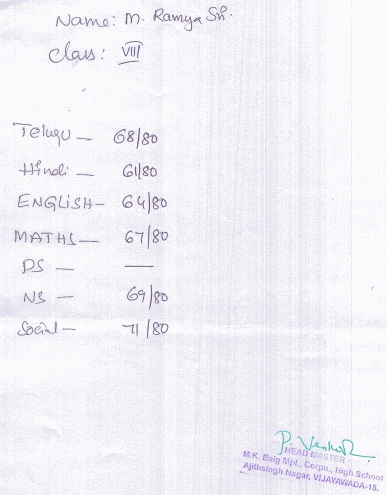 Name: M. Ramya Sri.
Class: VIII
Telugu — 68/80
Hindi — 61/80
ENGLISH — 64/80
MATHS — 67/80
PS — —
NS — 69/80
Social — 71/80
P. Venkat
HEAD MASTER
M.K. Baig Mpl., Corpn., High School
Ajithsingh Nagar, VIJAYAWADA-15.